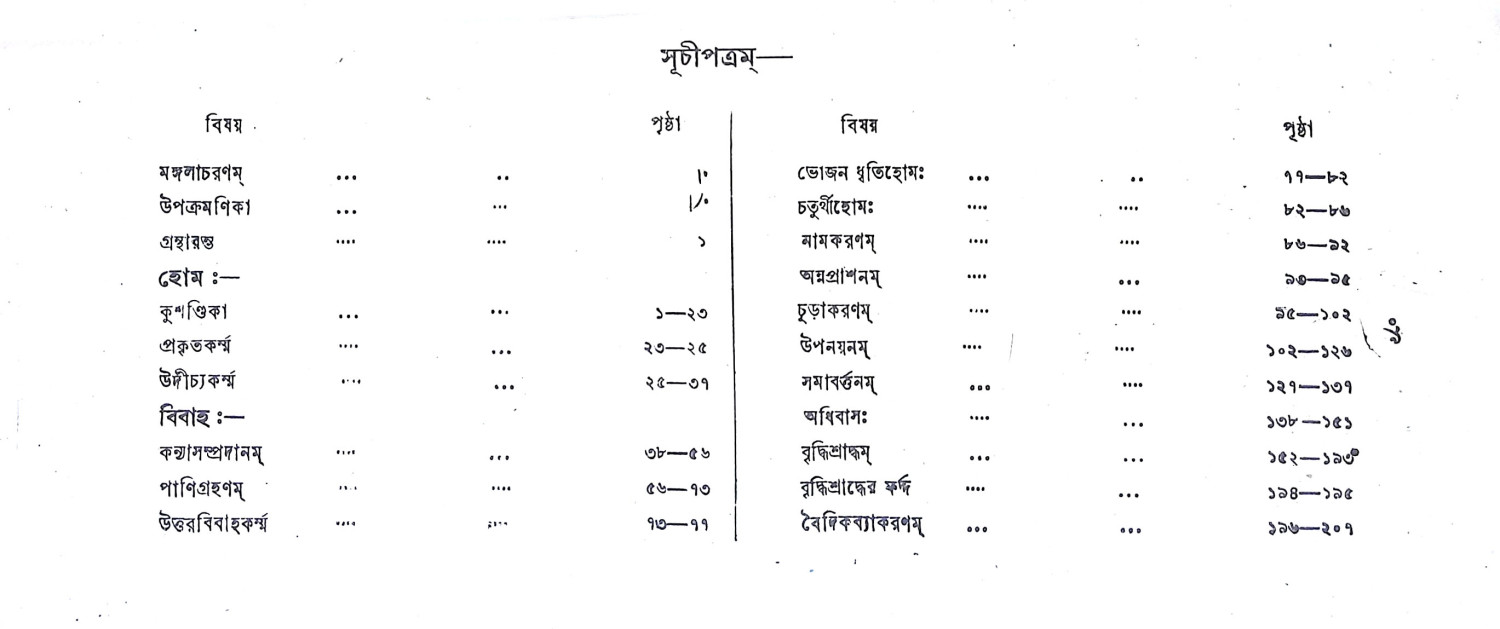 সূচীপত্রম্—
বিষয় পৃষ্ঠা
মঙ্গলাচরণম্ ... .. ৷৹
উপক্রমণিকা ... ... ৷৴৹
গ্রন্থারম্ভ .... .... ১
হোম :—
কুশণ্ডিকা ... ... ১—২৩
প্রকৃতকর্ম্ম .... ... ২৩—২৫
উদীচ্যকর্ম্ম .... ... ২৫—৩৭
বিবাহ :—
কন্যাসম্প্রদানম্ .... ... ৩৮—৫৬
পাণিগ্রহণম্ .... .... ৫৬—৭৩
উত্তরবিবাহকর্ম্ম .... .... ৭৩—৭৭
বিষয় পৃষ্ঠা
ভোজন ধৃতিহোমঃ ... .. ৭৭—৮২
চতুর্থীহোমঃ .... .... ৮২—৮৬
নামকরণম্ .... .... ৮৬—৯২
অন্নপ্রাশনম্ .... ... ৯৩—৯৫
চূড়াকরণম্ .... .... ৯৫—১০২
উপনয়নম্ .... .... ১০২—১২৬
সমাবর্ত্তনম্ ... .... ১২৭—১৩৭
অধিবাসঃ .... ... ১৩৮—১৫১
বৃদ্ধিশ্রাদ্ধম্ ... ... ১৫২—১৯৩
বৃদ্ধিশ্রাদ্ধের ফর্দ্দ .... ... ১৯৪—১৯৫
বৈদিকব্যাকরণম্ ... ... ১৯৬—২০৭